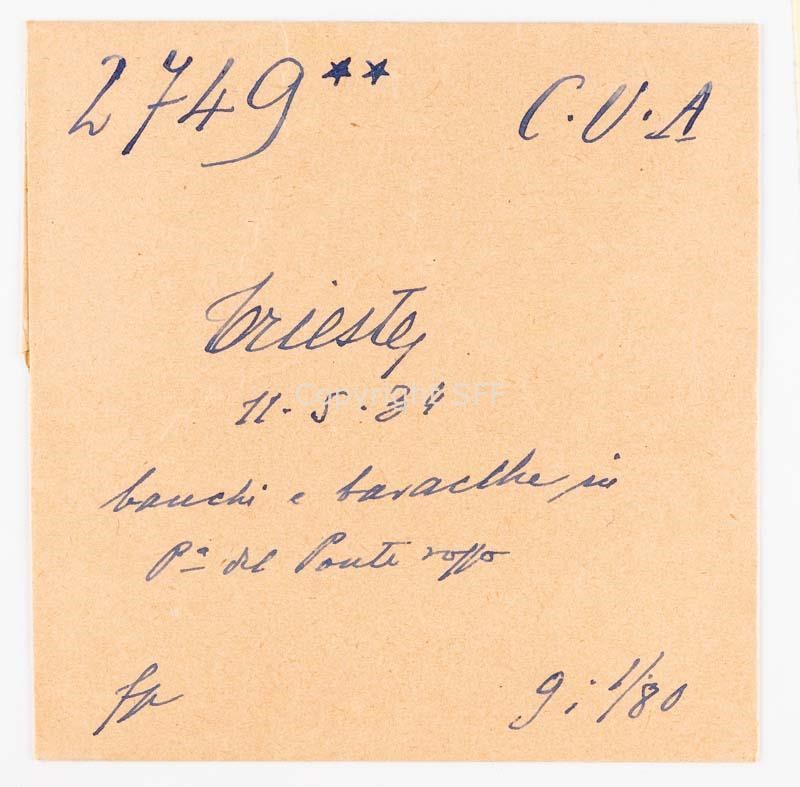 2749** C.V.A
Trieste
11.5.34
Copyright SFF
banchi e baracche in
Pª del Ponte rosso
fp
9; 1/80